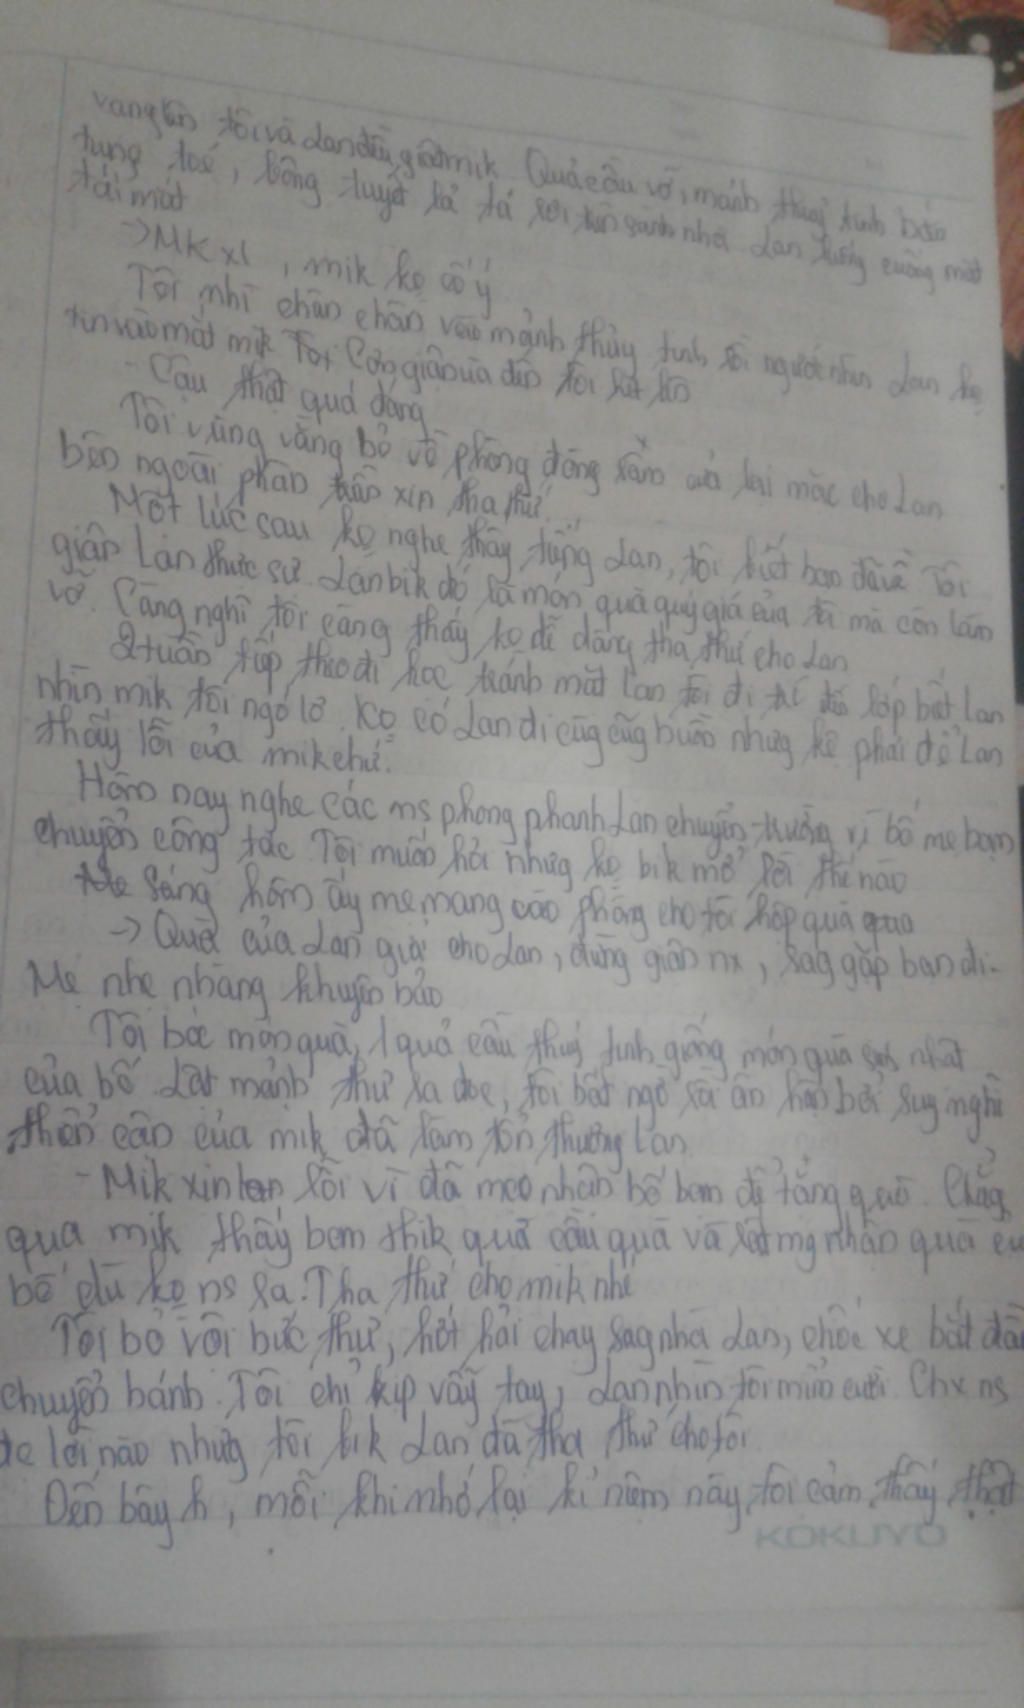 vang lên tôi và Lan đều giật mik Quả cầu vỡ, mảnh thuỷ tinh bắn
tung toé, bông tuyết lả tả rơi trên sành nhà Lan luống cuống mặt
tái mát
→ Mk xl, mik kọ cố ý
Tôi nhì chân chân vào mảnh thủy tinh rồi ngước nhìn Lan kọ
tin vào mắt mik Tôi Cơn giận ùa đến tôi hét lên
- Cậu thật quá đáng
Tôi vùng vằng bỏ về phòng đóng sầm cửa lại mặc cho Lan
bên ngoài phân trần xin tha thứ.
Một lúc sau kọ nghe thấy tiếng Lan, tôi biết bạn đã về Tôi
giận Lan thực sự. Lan bik đó là món quà quý giá của tôi mà còn làm
vỡ. Càng nghĩ tôi càng thấy kọ dễ dàng tha thứ cho Lan
2 tuần tiếp theo đi học tránh mặt Lan tôi đi tới lớp bắt Lan
nhìn mik tôi ngó lơ. Kọ có Lan đi cũg cũg buồn nhưg kệ phải để Lan
thấy lỗi của mik chứ.
Hôm nay nghe các ms phong phanh Lan chuyển trường vì bố mẹ bạn
chuyển công tác Tôi muốn hỏi nhưg kọ bik mở lời thế nào
Sáng hôm ấy mẹ mang vào phòng cho tôi hộp quà
→ Quà của Lan gửi cho Lan, đừng giận nx, sag gặp bạn đi.
Mẹ nhẹ nhàng khuyên bảo
Tôi bóc món quà, 1 quả cầu thuỷ tinh giống món quà sinh nhật
của bố Lật mảnh thư ra đọc, tôi bất ngờ rồi ân hận bởi suy nghĩ
thiển cận của mik đã làm tổn thương Lan
- Mik xin lỗi vì đã mạo nhận bố bạn để tặng quà. Chẳg
qua mik thấy bạn thik quả cầu quá và mg nhận quà củ
bố dù kọ ns ra. Tha thứ cho mik nhé
Tôi bỏ vội bức thư, hớt hải chạy sag nhà Lan, chiếc xe bắt đầu
chuyển bánh. Tôi chỉ kịp vẫy tay, Lan nhìn tôi mỉm cười. Chx ns
đc lời nào nhưg tôi bik Lan đã tha thứ cho tôi
Đến bây h, mỗi khi nhớ lại kỉ niệm này, tôi cảm thấy thật
KOKUYO